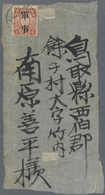 軍事
鳥取縣西伯郡
餘子村大字竹内
南原善平様